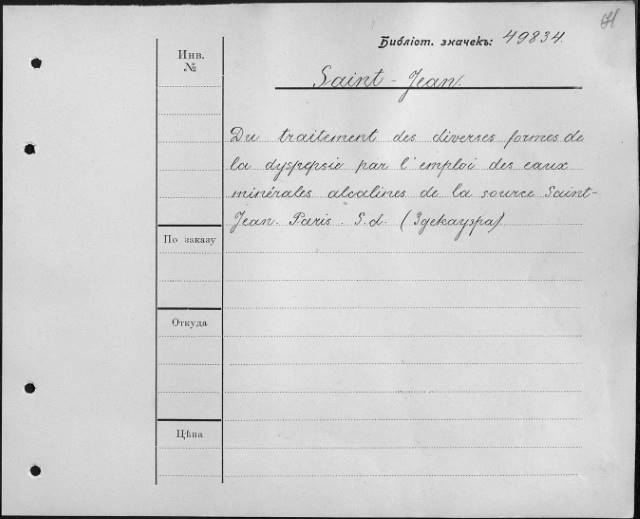 Библіот. значекъ: 49834.
Инв. №
Saint-Jean.
Du traitement des diverses formes de
la dyspepsie par l'emploi des eaux
minérales alcalines de la source Saint-
Jean. Paris. S.d. (Здекауэра)
По заказу
Откуда
Цѣна